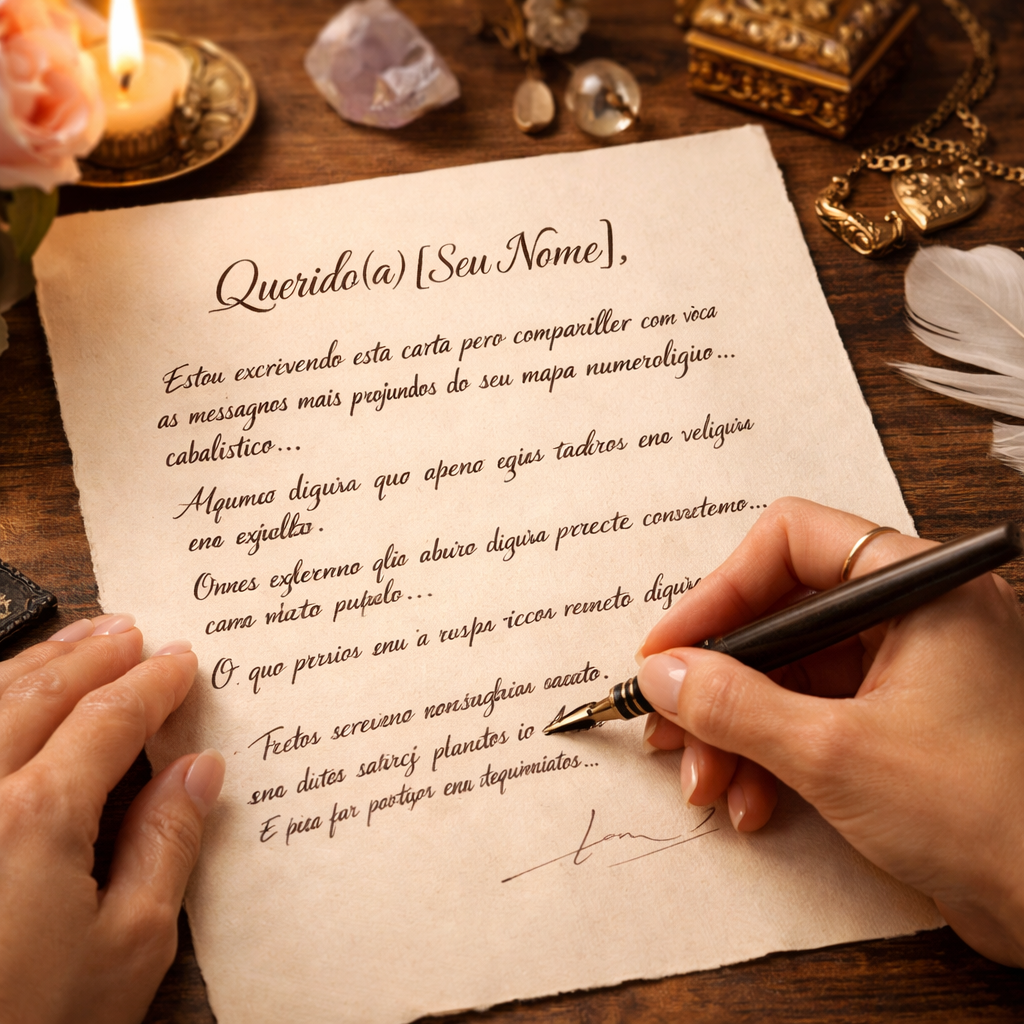 Querido(a) [Seu Nome],
Estou excrivendo esta carta pero compariller com voca
as messagnos mais projundos do seu mapa numeroligiuo...
cabalistico...
Alqumco digura quo apeno egias tadiros eno veligura
eno exjallto.
Onnes exglerrno qlio aburo digura prrecte consutemo...
camo miato pupelo...
O. quo prrsios enu a ruspr iccor remeto digura
Tretos sereuzno nonsughias
sno dutes satircj planctos io
E pica far poctypr enu